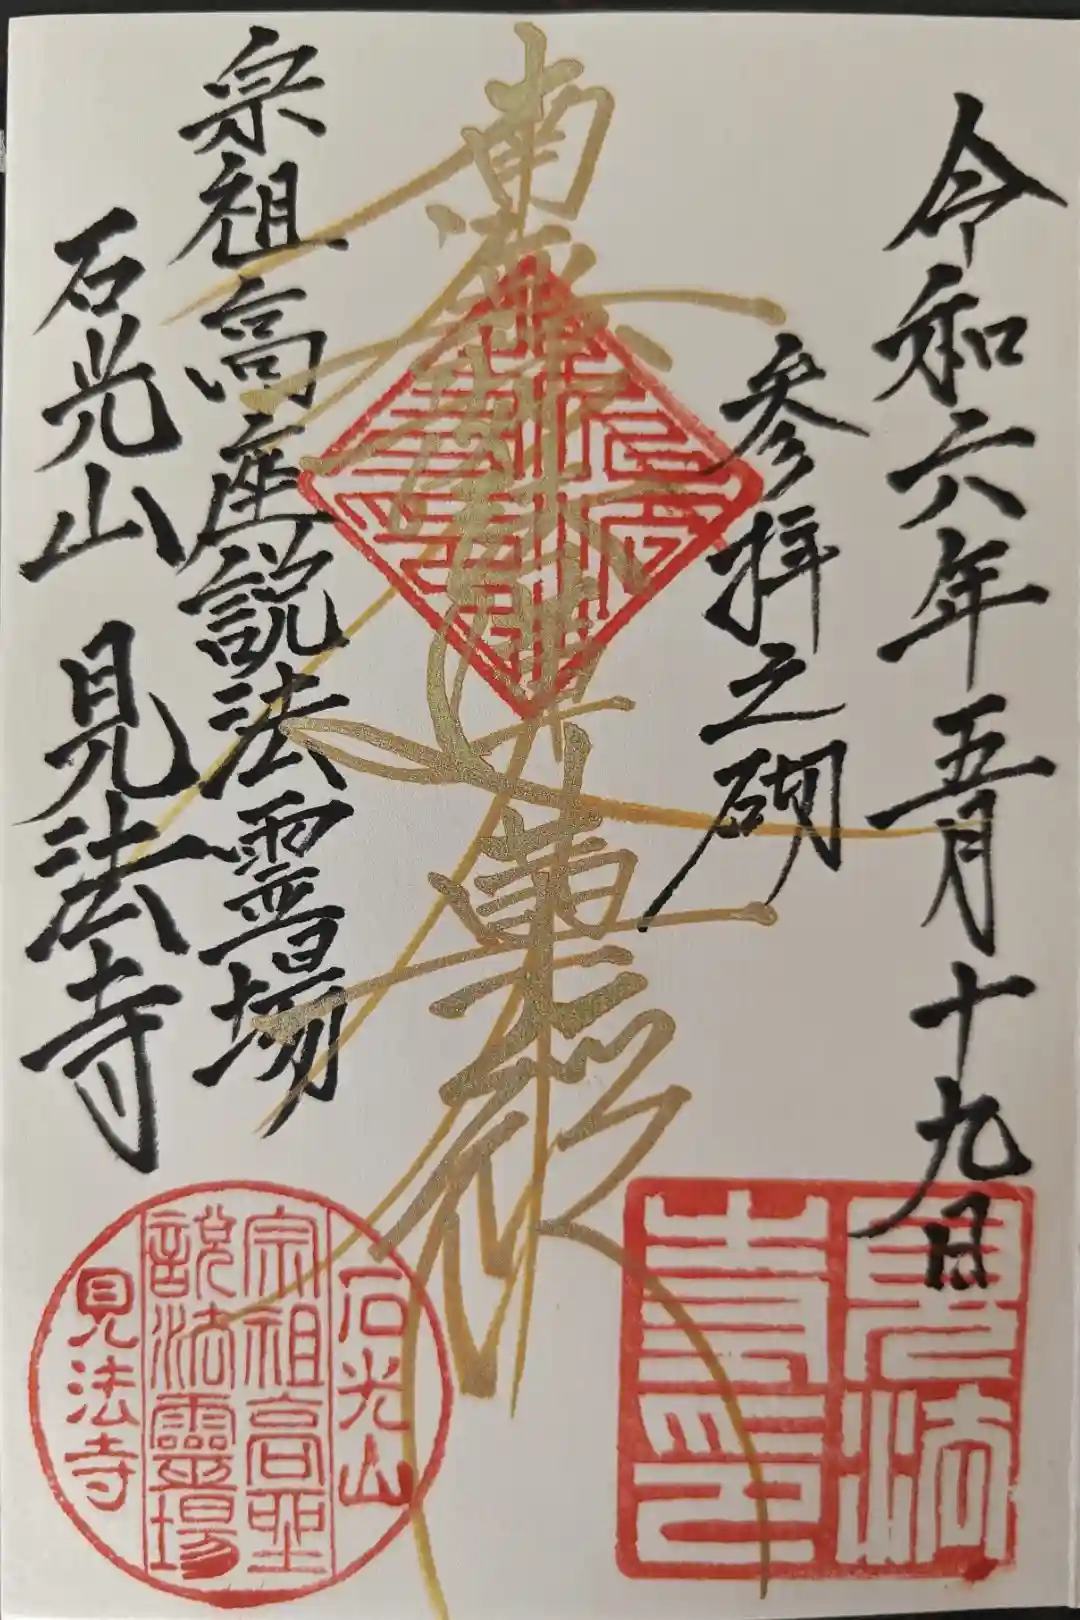 令和六年五月十九日
参拝之砌
南無妙法蓮華経
日蓮
宗祖高座説法霊場
石光山 見法寺
見法寺印
石光山
宗祖高座
説法靈場
見法寺